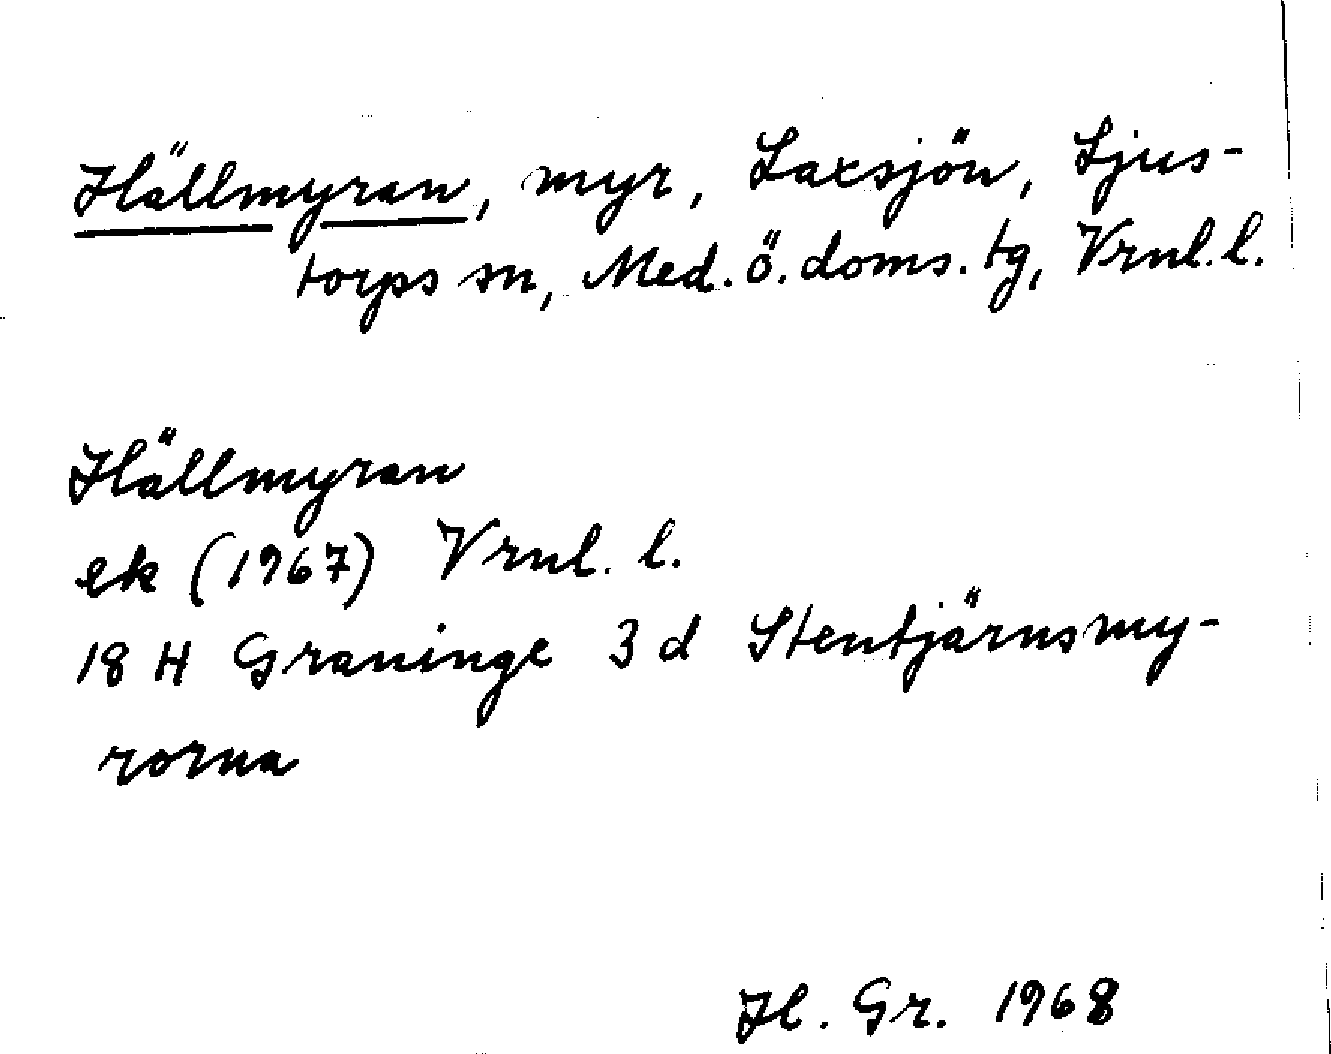 Hällmyran, myr, Laxsjön, Ljus-
torps sn, Med. ö. doms. tg, Vrnl. l.
Hällmyran
ek (1967) Vrnl. l.
18 H Graninge 3 d Stentjärnsmy-
rorna
H. Gr. 1968